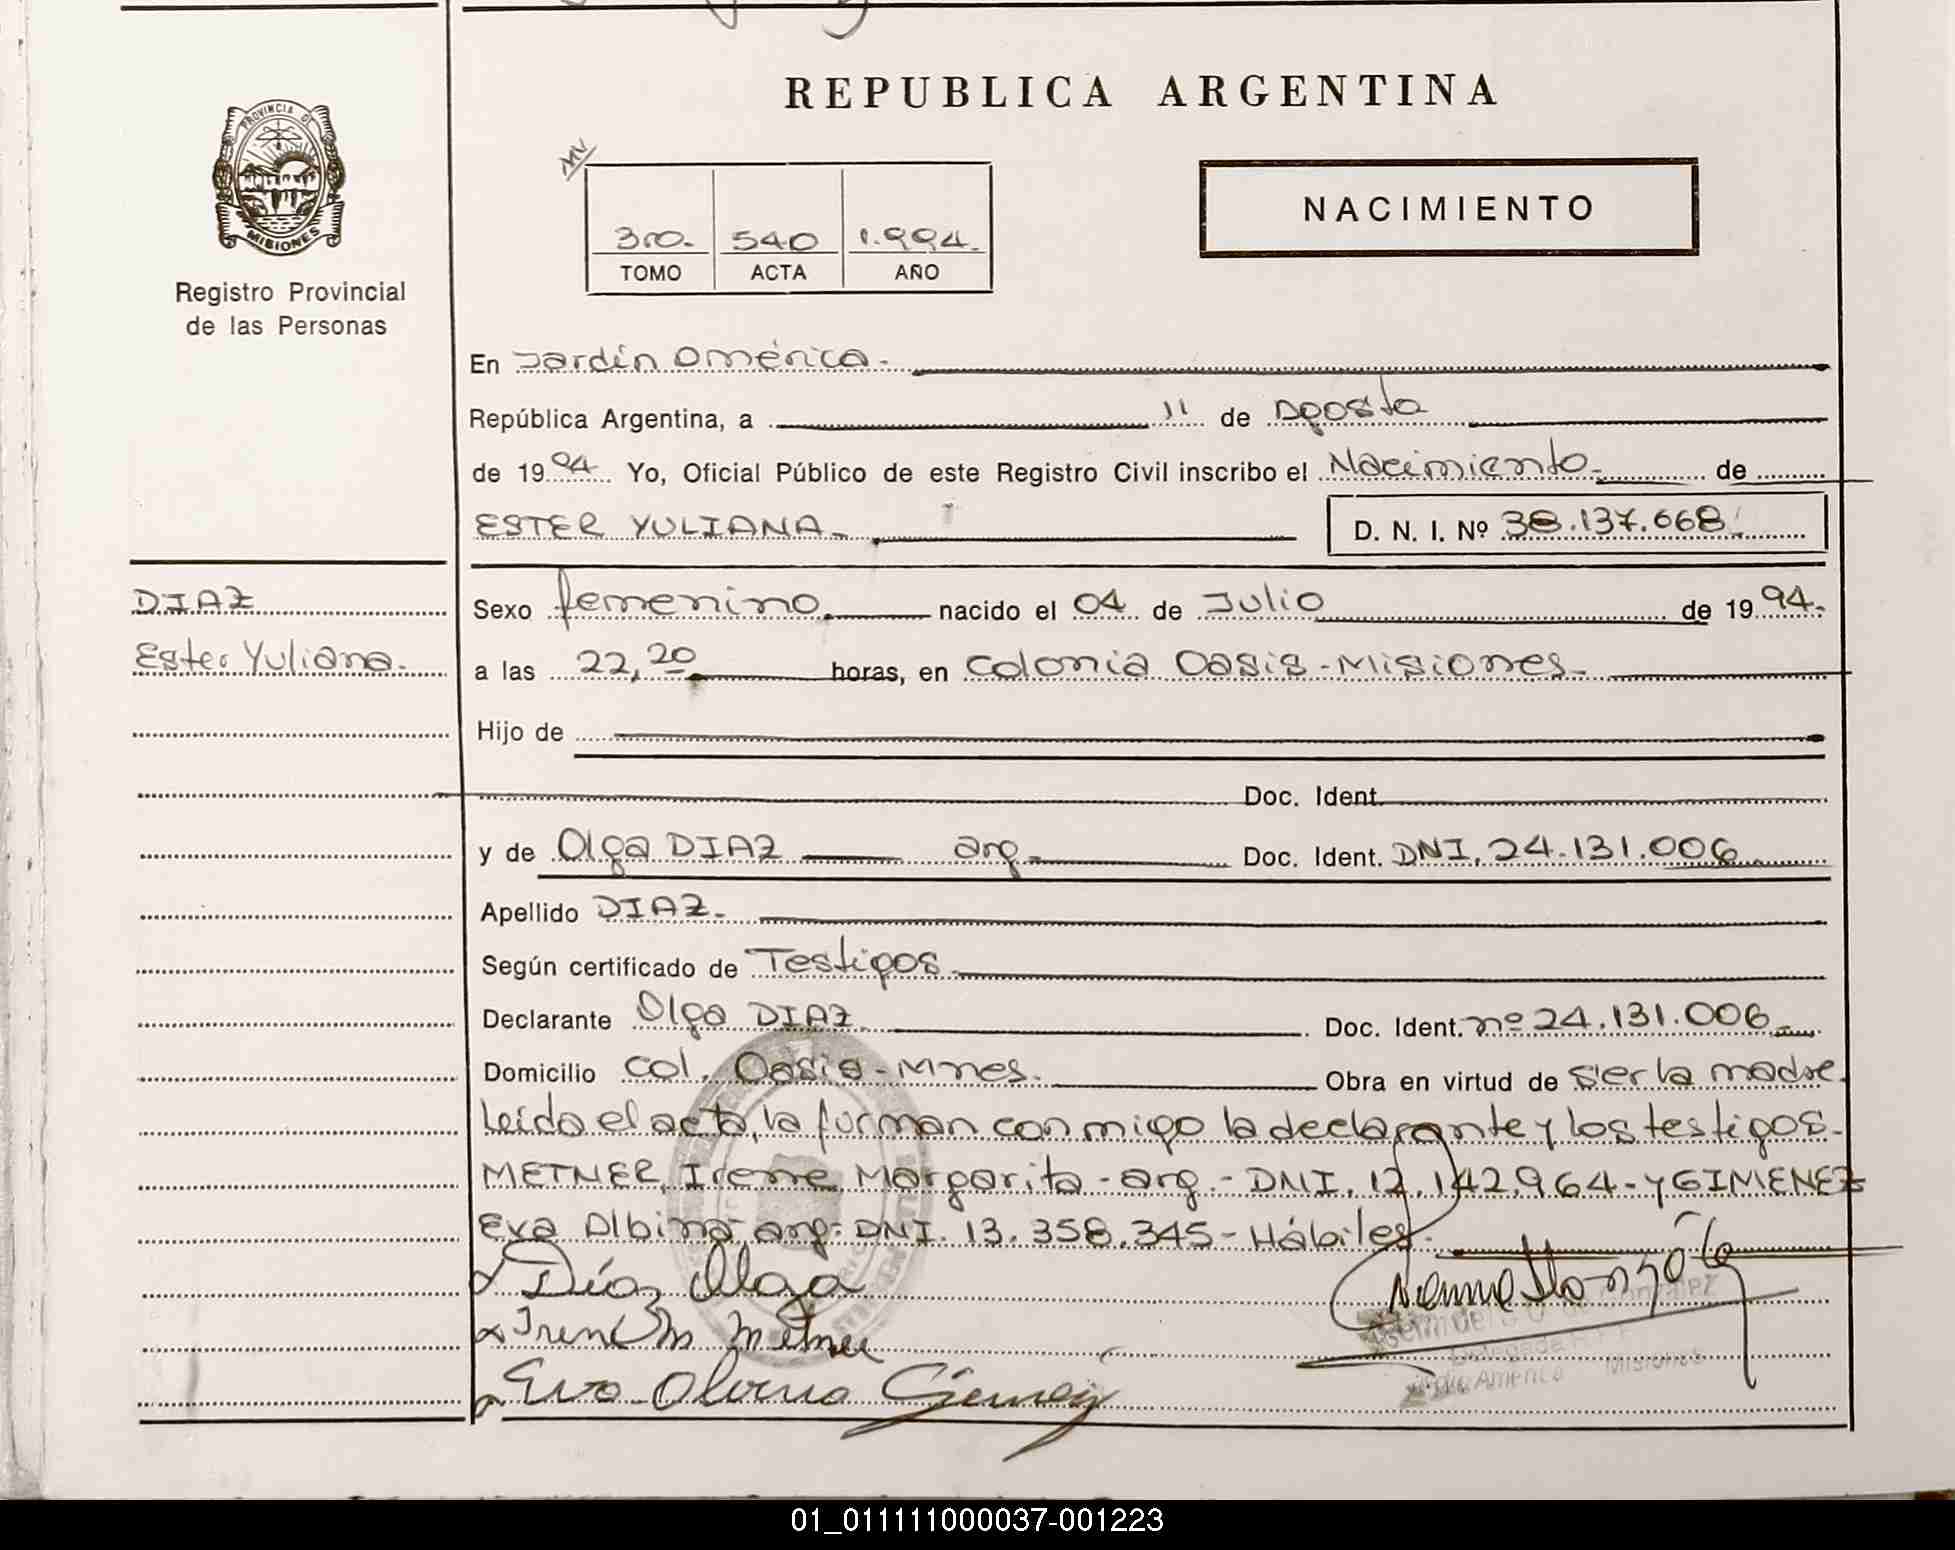 REPUBLICA ARGENTINA
PROVINCIA DE
MISIONES
Registro Provincial
de las Personas
MV
3ro. 540 1.994.
TOMO ACTA AÑO
NACIMIENTO
En Jardín América.
República Argentina, a 11 de Agosto
de 1994 Yo, Oficial Público de este Registro Civil inscribo el Nacimiento. de
ESTER YULIANA. D. N. I. Nº 38.137.668
DIAZ
Ester Yuliana.
Sexo femenino. nacido el 04 de Julio de 1994.
a las 22,20 horas, en Colonia Oasis - Misiones.
Hijo de
Doc. Ident.
y de Olga DIAZ arg. Doc. Ident. DNI. 24.131.006
Apellido DIAZ.
Según certificado de Testigos.
Declarante Olga DIAZ Doc. Ident. nº 24.131.006
Domicilio Col. Oasis - Mnes. Obra en virtud de ser la madre.
Leída el acta, la furman conmigo la declarante y los testigos.
METNER, Irene Margarita - arg. - DNI. 12.142.964 - y GIMENEZ
Eva Albina - arg. - DNI. 13.358.345 - Hábiles.
Díaz Olga
Irene M Metner
Misiones
01_011111000037-001223